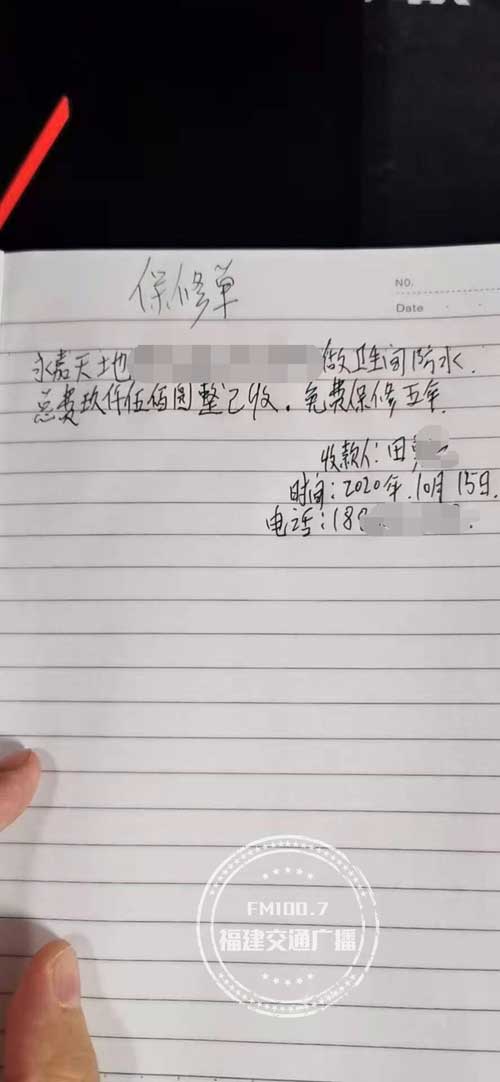 保修单
NO.
Date
永嘉天地 做卫生间防水.
总费玖仟伍佰圆整已收。免费保修五年.
收款人:田
时间:2020年.10月15日.
电话:18
FM100.7
福建交通广播